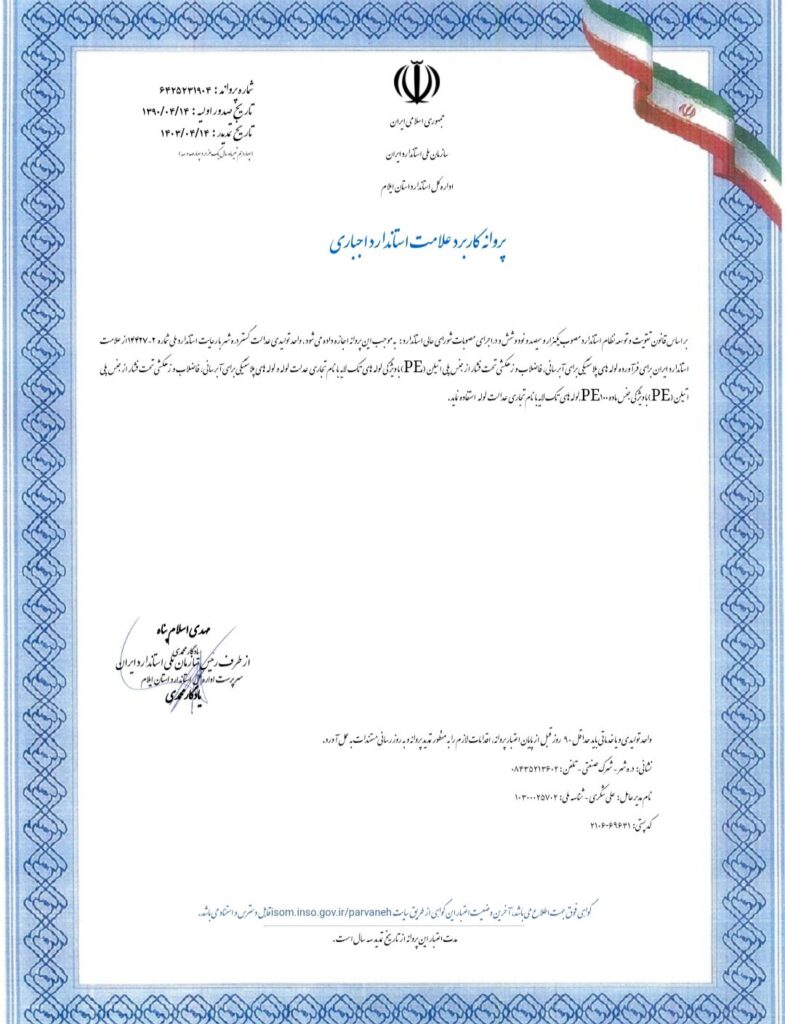 شماره پروانه : ۶۴۲۵۲۳۱۹۰۴
تاریخ صدور اولیه : ۱۳۹۰/۰۴/۱۴
تاریخ تمدید : ۱۴۰۳/۰۴/۱۴
(چهاردهم تیر ماه سال یک هزار و چهارصد و سه)
جمهوری اسلامی ایران
سازمان ملی استاندارد ایران
اداره کل استاندارد استان ایلام
پروانه کاربرد علامت استاندارد اجباری
بر اساس قانون تقویت و توسعه نظام استاندارد مصوب یکهزار و سیصد و نود و شش و در اجرای مصوبات شورای عالی استاندارد : به موجب این پروانه اجازه داده می شود، واحد تولیدی عدالت گستر دره شهر با رعایت استاندارد ملی شماره ۲-۱۴۴۲۷ از علامت
استاندارد ایران برای فرآورده لوله های پلاستیکی برای آبرسانی، فاضلاب و زهکشی تحت فشار از جنس پلی اتیلن (PE) با ویژگی لوله های تک لایه با نام تجاری عدالت لوله و لوله های پلاستیکی برای آبرسانی، فاضلاب و زهکشی تحت فشار از جنس پلی
اتیلن (PE) با ویژگی جنس ماده PE۱۰۰ لوله های تک لایه با نام تجاری عدالت لوله استفاده نماید.
مهدی اسلام پناه
یادگار محمدی
از طرف رئیس سازمان ملی استاندارد ایران
سرپرست اداره کل استاندارد استان ایلام
یادگار محمدی
واحد تولیدی و یا خدماتی باید حداقل ۹۰ روز قبل از پایان اعتبار پروانه، اقدامات لازم را به منظور تمدید پروانه و به روز رسانی مستندات به عمل آورد.
نشانی: دره شهر - شهرک صنعتی - تلفن: ۰۸۴۳۵۲۱۳۶۰۲
نام مدیر عامل: علی شکری - شناسه ملی: ۱۰۳۰۰۰۲۵۷۰۲
کد پستی: ۶۹۶۳۱-۲۱۰۶
گواهی فوق جهت اطلاع می باشد، آخرین وضعیت اعتبار این گواهی از طریق سایت isom.inso.gov.ir/parvaneh قابل دسترس و استناد می باشد.
مدت اعتبار این پروانه از تاریخ تمدید سه سال است.